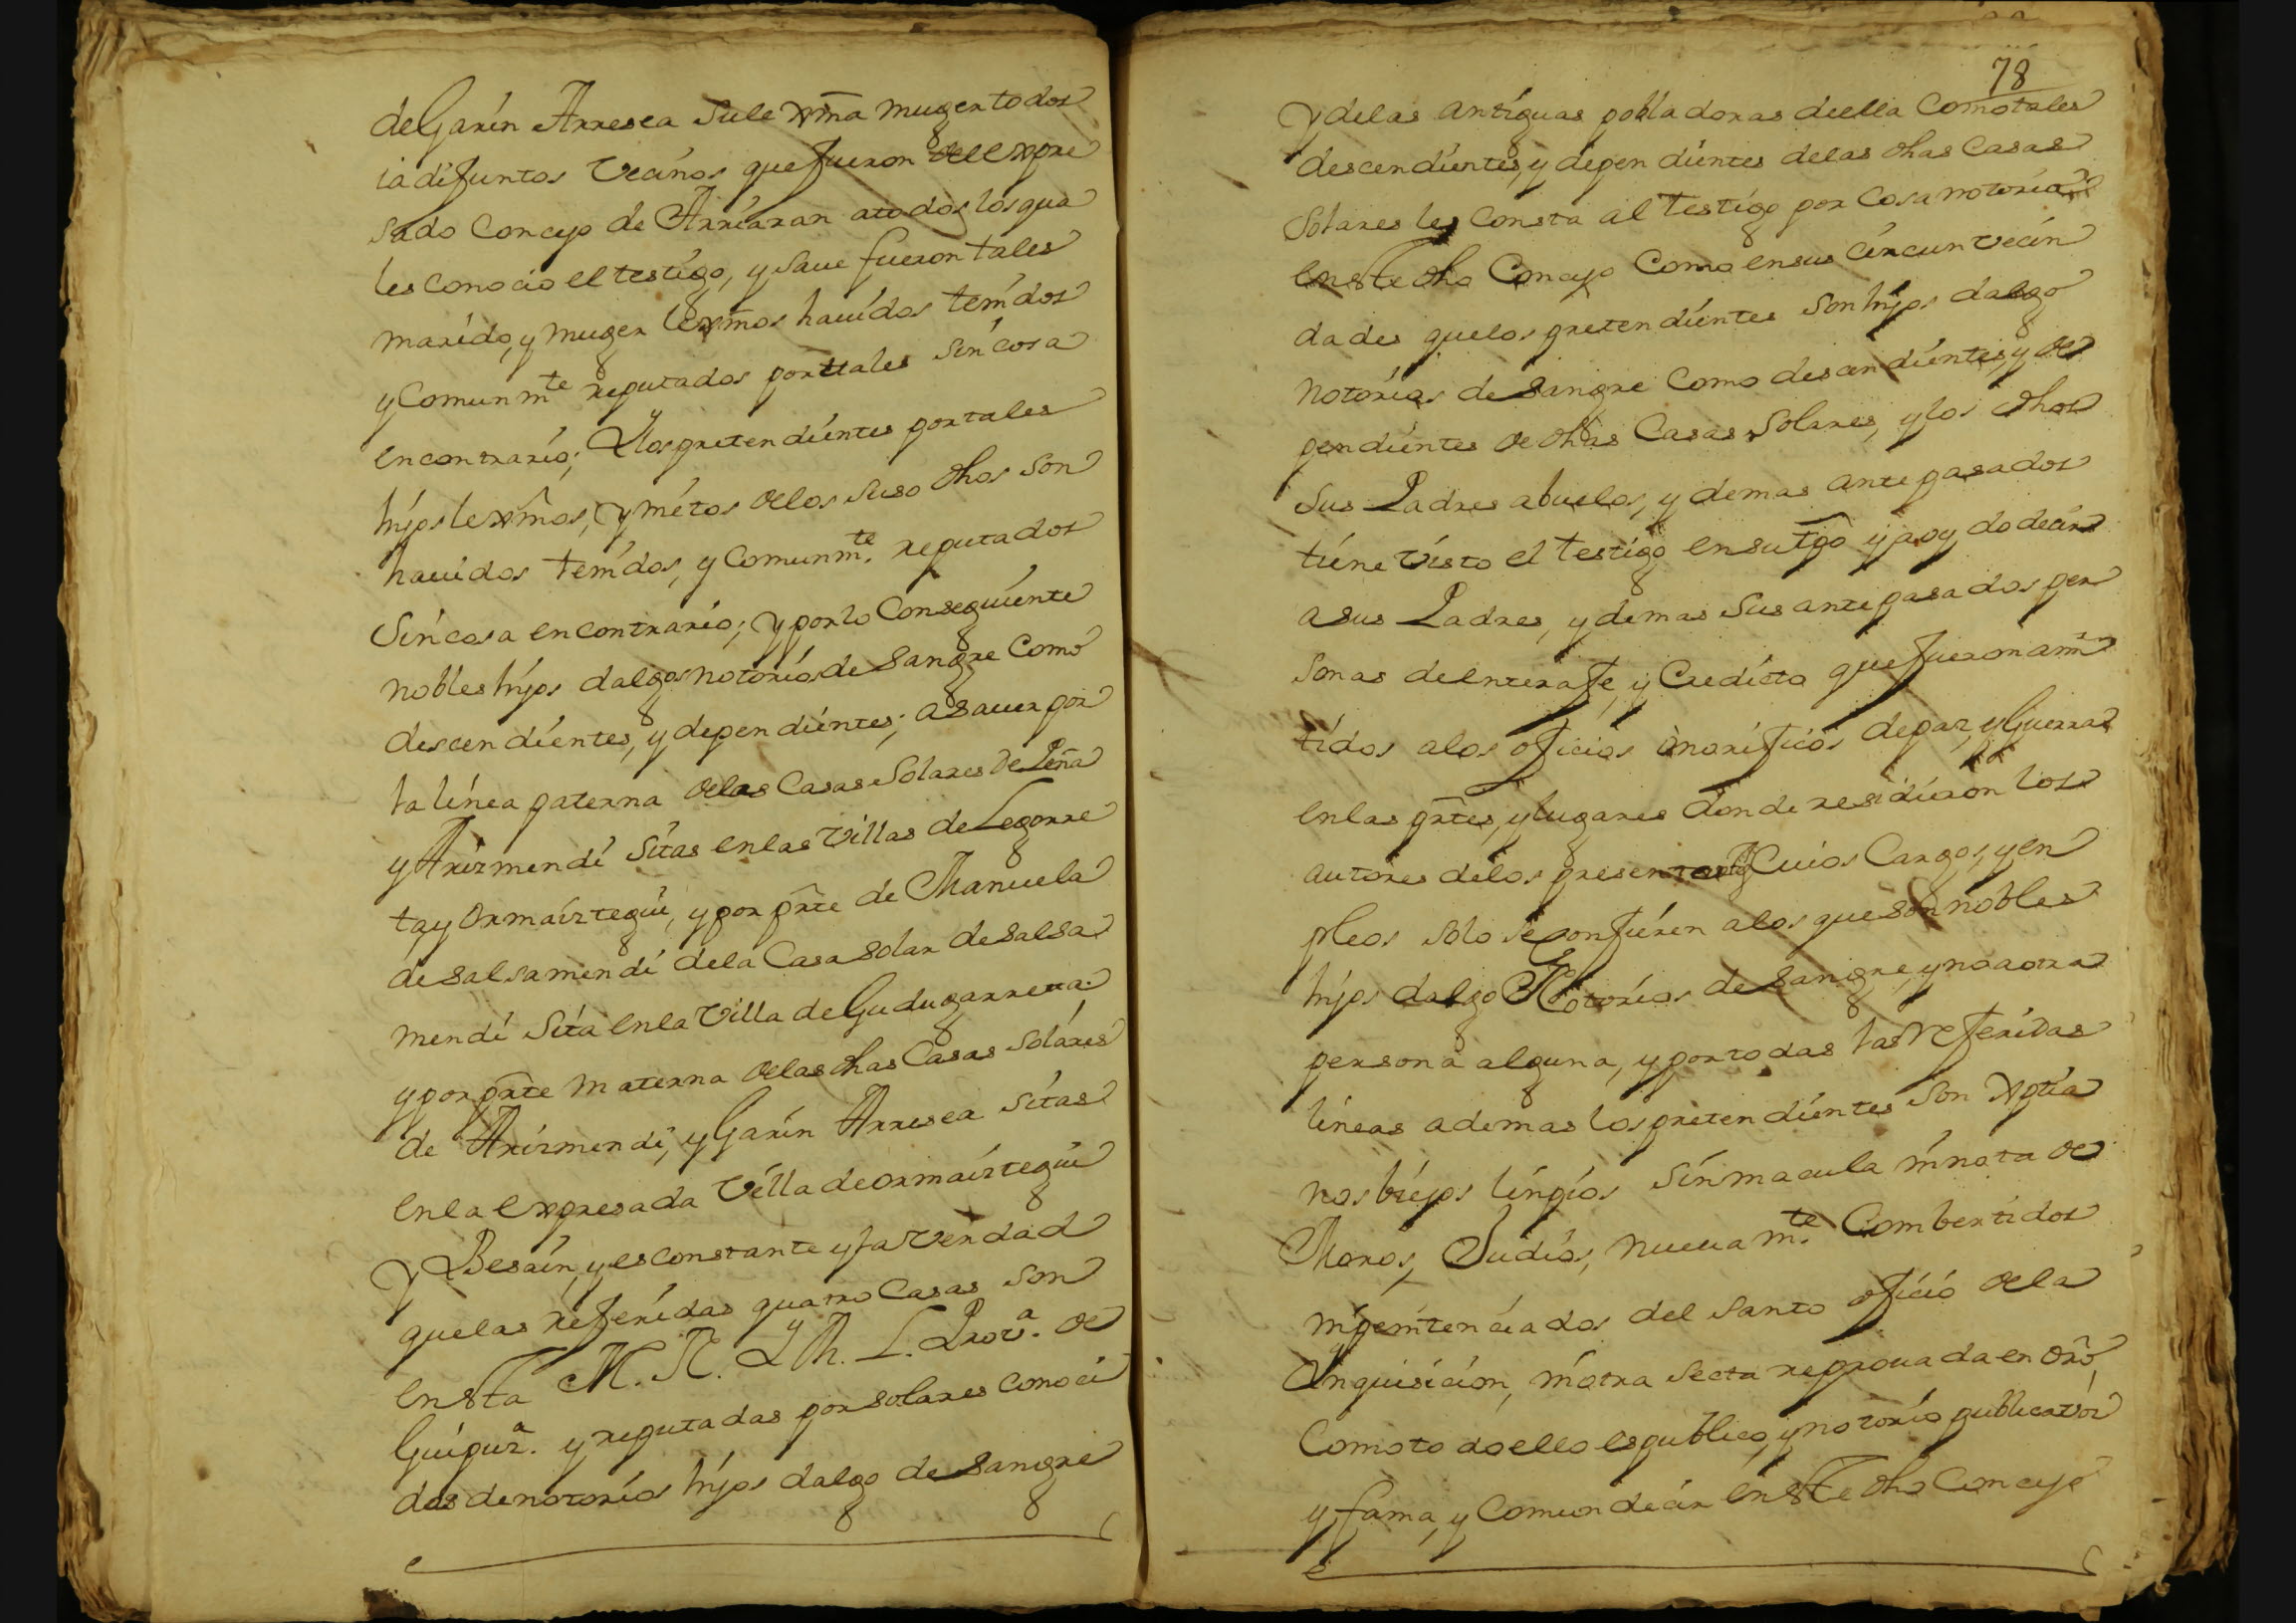 de Garin Arresea Su lexma muger todos
ia difuntos Vecinos que fueron del expre
sado Concejo de Arriaran a todos los qua
les conocio el testigo, y save fueron tales
marido, y muger lexmos havidos tenidos
y Comunmte reputados por ttales sin cosa
en contrario; Y los pretendientes por tales
hijos lexmos, y nietos de los suso dhos son
havidos tenidos, y Comunmte. reputados
Sin cosa en contrario; y por lo Conseguiente
nobles hijos dalgos notorios de Sangre Como
descendientes, y dependientes; a saver por
la linea paterna de las Casas Solares de Peña
y Arizmendi Sitas en las Villas de Legorre
ta y Ormaiztegui, y por prte de Manuela
de Salsamendi de la Casa Solar de Salsa
mendi Sita en la Villa de Gudugarreta
y por prte Materna de las dhas Casas Solares
de Arizmendi, y Garin Arresea Sitas
en la expresada Villa de Ormaiztegui
Y Besain, y es constante y la verdad
que las referidas quatro Casas son
en Sta M. N. Y M. L. Prova. de
Guipuza. y reputadas por solares conoci
dos de notorios hijos dalgo de Sangre
78
Y de las antiguas pobladoras de ella Como tales
descendientes, y dependientes de las dhas Casas
Solares les Consta al testigo por Cosa notoria
en Ste dho Concejo Como en sus Circunvecin
dades que los pretendientes Son hijos dalgo
Notorios de Sangre Como descendientes, y de
pendientes de dhas Casas Solares, y los dhos
Sus Padres abuelos, y demas antepasados
tiene Visto el testigo en su tpo y a oydo decir
a sus Padres, y demas Sus antepasados per
sonas de entera fe, y Credito que fueron ami
tidos a los oficios onorificos de paz, y Guerra
en las prtes, y lugares donde residieron los
autores de los Cuios Cargos, y en
pleos solo se confieren a los que son nobles
hijos dalgo Notorios de Sangre, y no a otra
persona alguna, y por todas las referidas
lineas ademas los pretendientes Son Xptia
nos biejos linpios Sin macula ni nota de
Moros, Judios, nuevamte. Combertidos
ni penitenciados del Santo oficio de la
Inquisicion, ni otra Secta reprovada en dro,
Como todo ello es publico, y notorio publica voz
y fama, y Comun decir en Ste dho Concejo